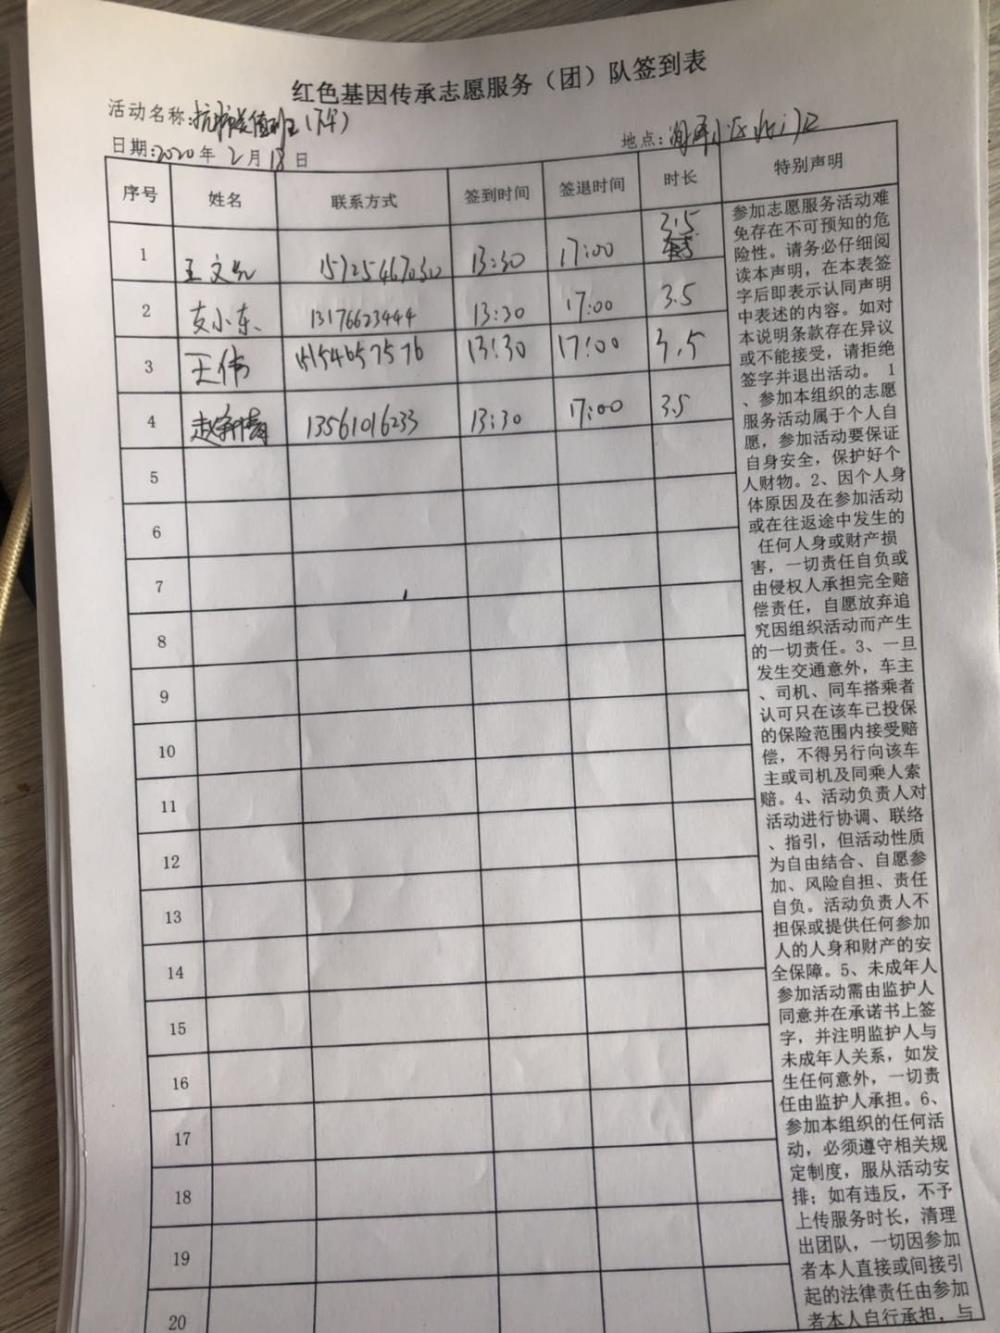 红色基因传承志愿服务（团）队签到表
活动名称:抗病毒值班(下午)
日期:2020年2月18日 地点:
序号 姓名 联系方式 签到时间 签退时间 时长 特别声明
1 王文 15725467030 13:30 17:00 3.5
2 支小东 13176623444 13:30 17:00 3.5
3 王伟 15154657576 13:30 17:00 3.5
4 赵 13561016233 13:30 17:00 3.5
5
6
7
8
9
10
11
12
13
14
15
16
17
18
19
20
参加志愿服务活动难
免存在不可预知的危
险性。请务必仔细阅
读本声明，在本表签
字后即表示认同声明
中表述的内容。如对
本说明条款存在异议
或不能接受，请拒绝
签字并退出活动。 1
、参加本组织的志愿
服务活动属于个人自
愿，参加活动要保证
自身安全，保护好个
人财物。2、因个人身
体原因及在参加活动
或在往返途中发生的
任何人身或财产损
害，一切责任自负或
由侵权人承担完全赔
偿责任，自愿放弃追
究因组织活动而产生
的一切责任。3、一旦
发生交通意外，车主
、司机、同车搭乘者
认可只在该车已投保
的保险范围内接受赔
偿，不得另行向该车
主或司机及同乘人索
赔。4、活动负责人对
活动进行协调、联络
、指引，但活动性质
为自由结合、自愿参
加、风险自担、责任
自负。活动负责人不
担保或提供任何参加
人的人身和财产的安
全保障。5、未成年人
参加活动需由监护人
同意并在承诺书上签
字，并注明监护人与
未成年人关系，如发
生任何意外，一切责
任由监护人承担。6、
参加本组织的任何活
动，必须遵守相关规
定制度，服从活动安
排；如有违反，不予
上传服务时长，清理
出团队，一切因参加
者本人直接或间接引
起的法律责任由参加
者本人自行承担，与